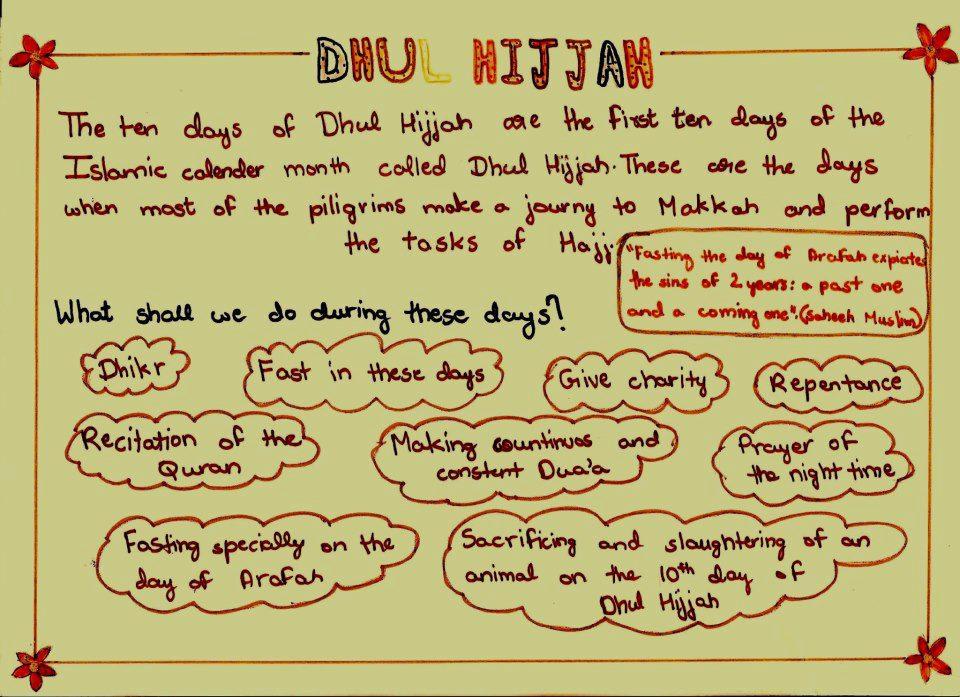 DHUL HIJJAH
The ten days of Dhul Hijjah are the first ten days of the
Islamic calender month called Dhul Hijjah. These are the days
when most of the piligrims make a journy to Makkah and perform
the tasks of Hajj.
"Fasting the day of Arafah expiates
the sins of 2 years: a past one
and a coming one". (Saheeh Muslim)
What shall we do during these days?
Dhikr
Fast in these days
Give charity
Repentance
Recitation of the
Quran
Making countinuos and
constent Dua'a
Prayer of
the night time
Fasting specially on the
day of Arafah
Sacrificing and slaughtering of an
animal on the 10th day of
Dhul Hijjah